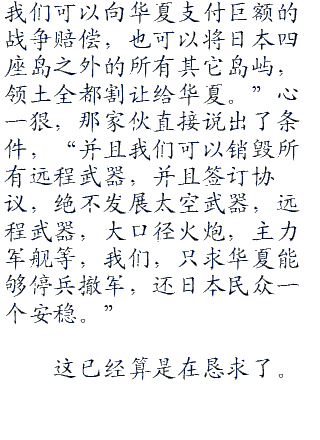 我们可以向华夏支付巨额的
战争赔偿，也可以将日本四
座岛之外的所有其它岛屿，
领土全都割让给华夏。”心
一狠，那家伙直接说出了条
件，“并且我们可以销毁所
有远程武器，并且签订协
议，绝不发展太空武器，远
程武器，大口径火炮，主力
军舰等，我们，只求华夏能
够停兵撤军，还日本民众一
个安稳。”
这已经算是在恳求了。